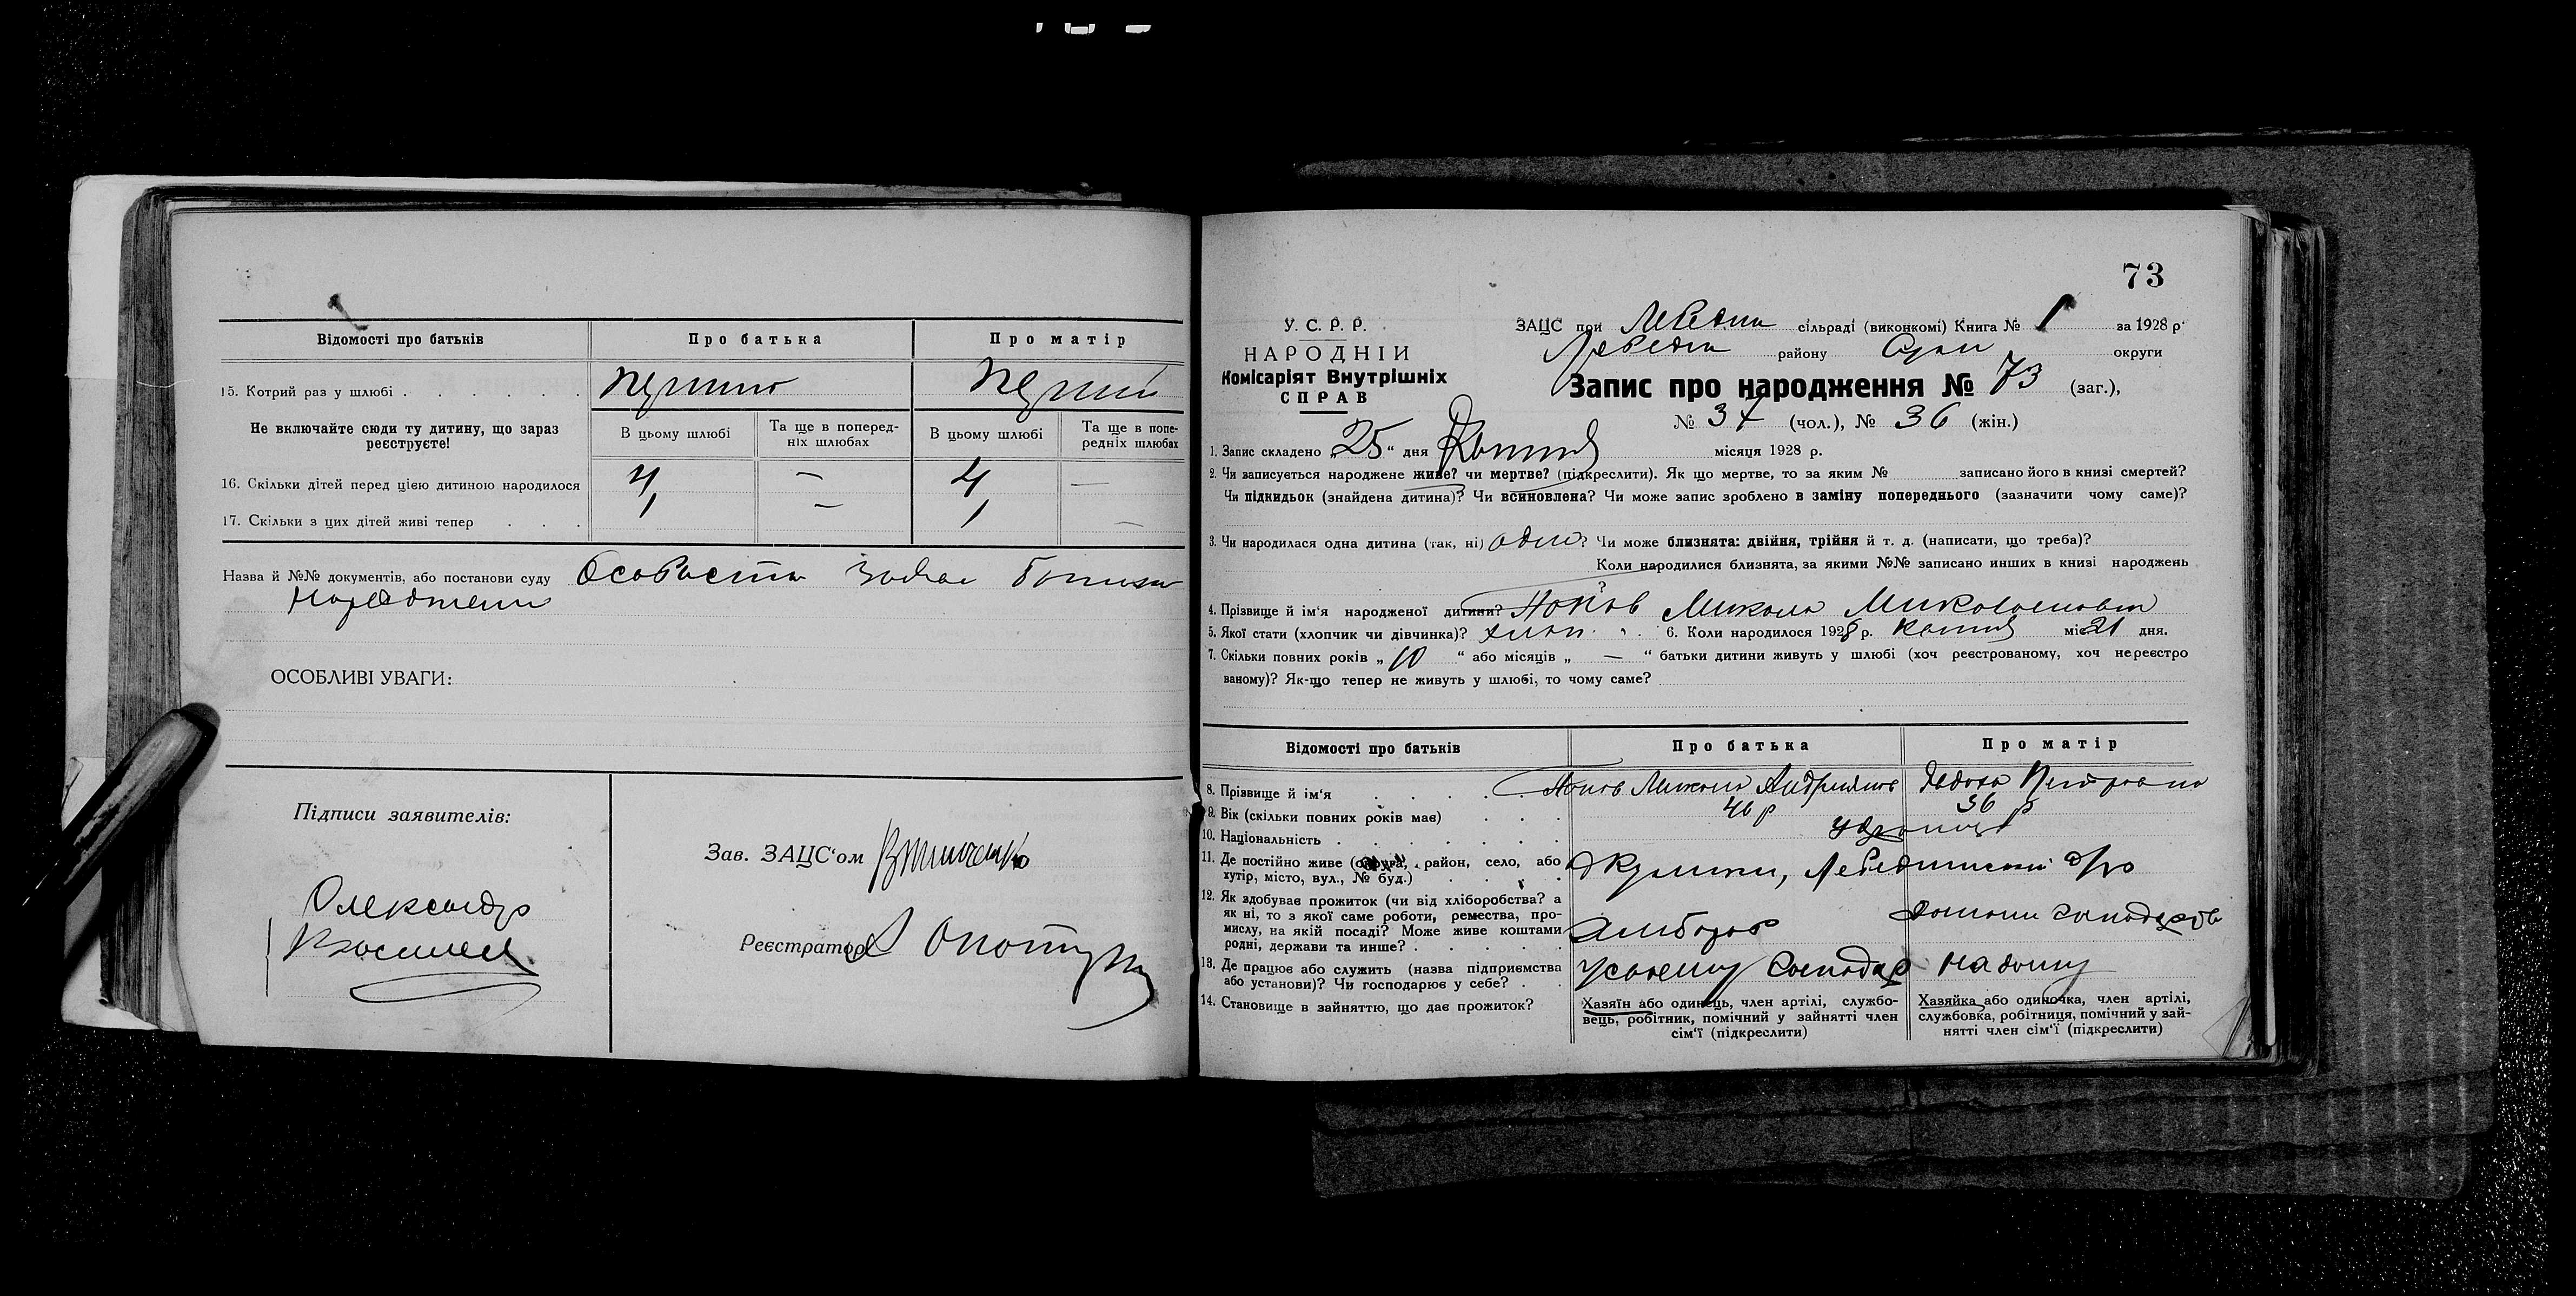 Відомості про батьків
Про батька
Про матір
15. Котрий раз у шлюбі . . . . . .
Не включайте сюди ту дитину, що зараз
реєструєте!
В цьому шлюбі
Та ще в поперед-
ніх шлюбах
В цьому шлюбі
Та ще в попе-
редніх шлюбах
16. Скільки дітей перед цією дитиною народилося 4 — 4 —
17. Скільки з цих дітей живі тепер . . . 1 — 1 —
Назва й №№ документів, або постанови суду
ОСОБЛИВІ УВАГИ:
Підписи заявителів:
Олександр
Зав. ЗАЦС‘ом
Реєстратор
73
У. С. Р. Р.
НАРОДНІЙ
Комісаріят Внутрішніх
СПРАВ
ЗАЦС при Лебедин сільраді (виконкомі) Книга № 1 за 1928 р.
Лебедин району Суми округи
Запис про народження № 73 (заг.),
№ 37 (чол.), № 36 (жін.)
1. Запис складено „25“ дня Квітня місяця 1928 р.
2. Чи записується народжене живе? чи мертве? (підкреслити). Як що мертве, то за яким № записано його в книзі смертей?
Чи підкидьок (знайдена дитина)? Чи всиновлена? Чи може запис зроблено в заміну попереднього (зазначити чому саме)?
3. Чи народилася одна дитина (так, ні) одна? Чи може близнята: двійня, трійня й т. д. (написати, що треба)?
Коли народилися близнята, за якими №№ записано инших в книзі народжень
?
4. Прізвище й ім‘я народженої дитини? Попов Микола Миколаєвич
5. Якої стати (хлопчик чи дівчинка)? хлоп. 6. Коли народилося 1928 р. квітня міс 21 дня.
7. Скільки повних років „10“ або місяців „—“ батьки дитини живуть у шлюбі (хоч реєстрованому, хоч нереєстро
ваному)? Як-що тепер не живуть у шлюбі, то чому саме?
Відомості про батьків
Про батька
Про матір
8. Прізвище й ім‘я . . . . . Попов Микола
9. Вік (скільки повних років має) . . . 40 р 36 р
10. Національність . . . . . . .
11. Де постійно живе (округа, район, село, або
хутір, місто, вул., № буд.) . . . .
12. Як здобуває прожиток (чи від хліборобства? а
як ні, то з якої саме роботи, ремества, про-
мислу, на якій посаді? Може живе коштами
родні, держави та инше? . . . . .
Хлібороб
13. Де працює або служить (назва підприємства
або установи)? Чи господарює у себе? . .
на дому
14. Становище в зайняттю, що дає прожиток?
Хазяїн або одинець, член артілі, службо-
вець, робітник, помічний у зайнятті член
сім‘ї (підкреслити)
Хазяйка або одиночка, член артілі,
службовка, робітниця, помічний у зай-
нятті член сім‘ї (підкреслити)